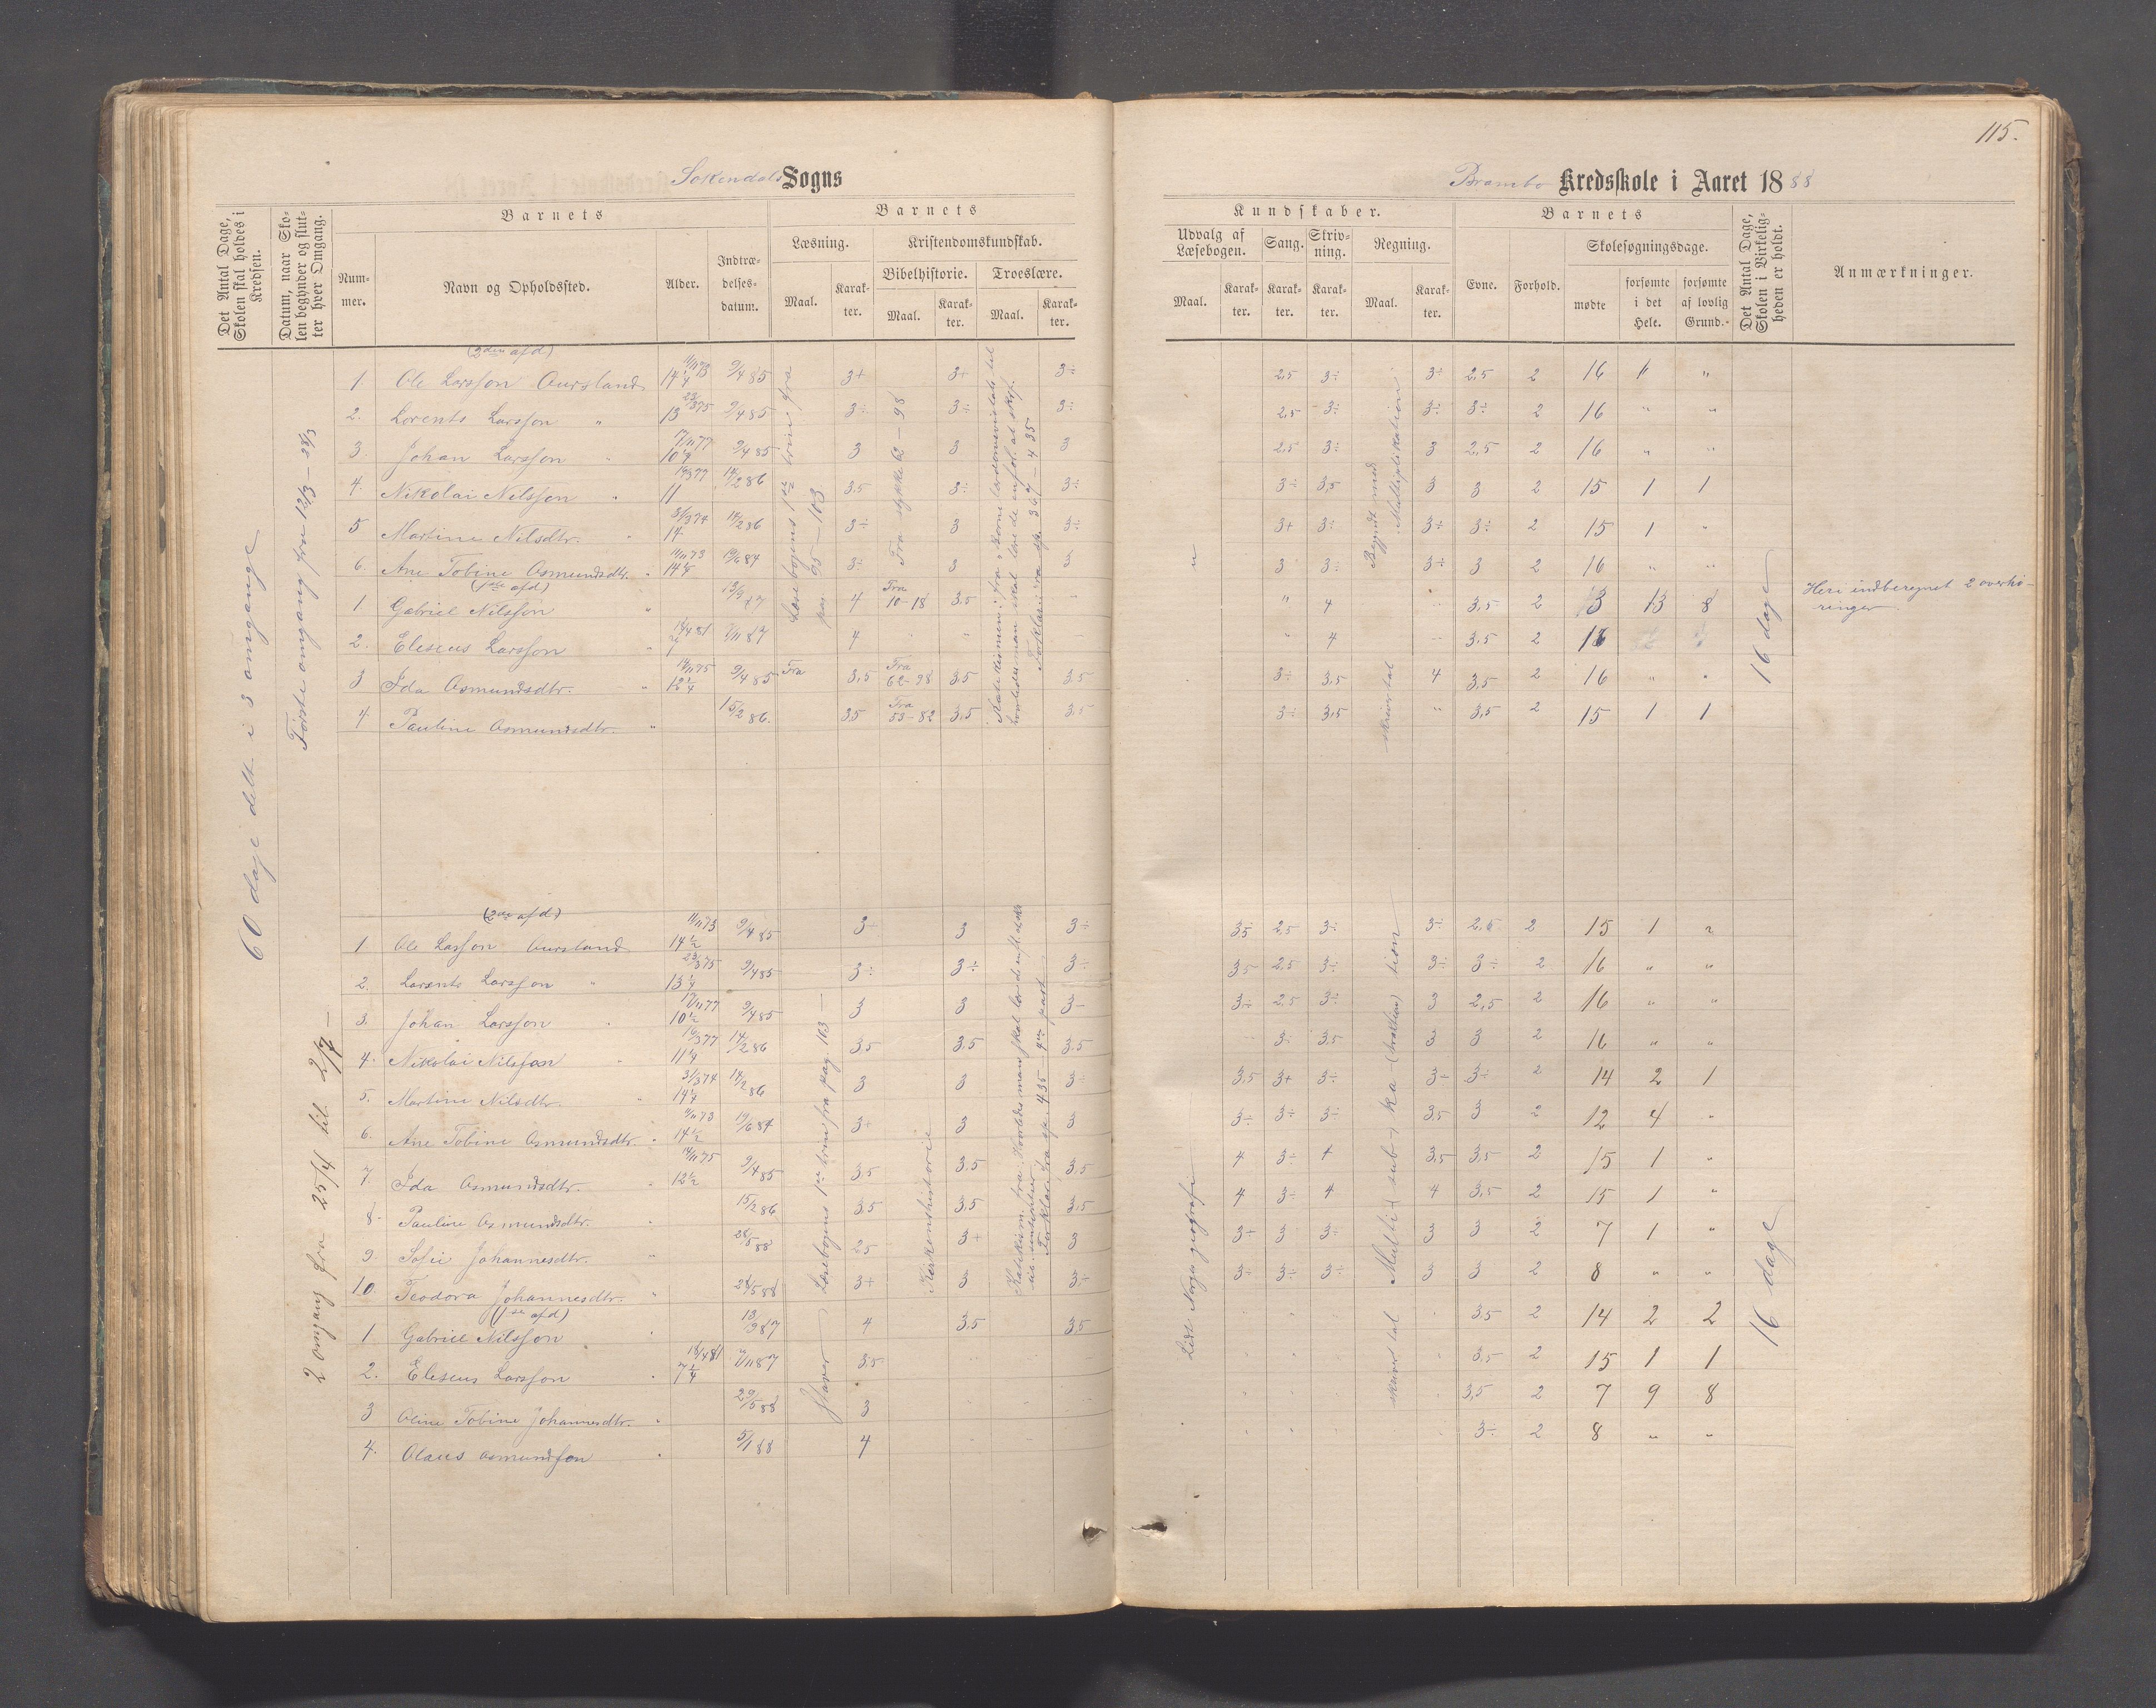 115.
Sokendals Sogns
Brambo Kredsskole i Aaret 1888
Det Antal Dage, Skolen skal holdes i Kredsen.
Datum, naar Skolen begynder og slutter hver Omgang.
Barnets
Nummer.
Navn og Opholdssted.
Alder.
Indtrædelsesdatum.
Barnets
Læsning.
Maal.
Karakter.
Kristendomskundskab.
Bibelhistorie.
Maal.
Karakter.
Troeslære.
Maal.
Karakter.
Kundskaber.
Udvalg af Læsebogen.
Maal.
Karakter.
Sang.
Karakter.
Skrivning.
Karakter.
Regning.
Maal.
Karakter.
Barnets
Evne.
Forhold.
Skolesøgningsdage.
mødte
forsømte i det Hele.
forsømte af lovlig Grund.
Det Antal Dage, Skolen i Virkeligheden er holdt.
Anmærkninger.
60 dage delt i 3 omgange
Første omgang fra 12/3 – 28/3
(2den afd)
1. Ole Larsson Aursland 14 1/4 11/11 73 9/4 85 3+ 3+ 3÷ 2,5 3÷ 3÷ 2,5 2 16 " "
2. Lorents Larsson " 13 23/3 75 9/4 85 3÷ 3÷ 3÷ 2,5 3÷ 3÷ 3÷ 2 16 " "
3. Johan Larsson " 10 1/4 17/11 77 9/4 85 3 3 3 2,5 3÷ 3 2,5 2 16 " "
4. Nikolai Nilsson " 11 16/3 77 14/2 86 3,5 3÷ 3÷ 3÷ 3,5 3 3 2 15 1 1
5 Martine Nilsdtr. " 14 31/3 74 14/2 86 3÷ 3 3÷ 3+ 3÷ 3÷ 3÷ 2 15 1 "
6. Ane Tobine Osmundsdtr. " 11/11 73 19/6 84 3÷ 3 3 3 3÷ 3÷ 3 2 16 " "
(1ste afd)
1 Gabriel Nilsson " 13/9 87 4 Fra 10–18 3,5 " " 4 3,5 2 3 13 8
2. Eliseus Larsson " 7 18/4 81 7/11 87 4 4 3,5 2 16
3 Ida Osmundsdtr. " 12 1/4 14/11 75 9/4 85 Fra 3,5 Fra 62–98 3,5 3,5 3÷ 3,5 4 3,5 2 16 " "
4 Pauline Osmundsdtr. " 15/2 86. 3,5 Fra 53–82 3,5 3,5 3÷ 3,5 " 3,5 2 15 1 1
Læsebogens 1ste trin fra pag. 95–103
Fra stykke 62–98
Forklar. fra sp. 367–435
Begyndt med Multiplikation.
skrivertal
16 dage
Heri indberegnet 2 overhøringer
2 omgang fra 25/4 til 2/7 –
(2den afd)
1. Ole Larsson Aursland 14 1/2 11/11 73 9/4 85 3÷ 3 3÷ 3,5 2,5 3÷ 3÷ 2,5 2 15 1 "
2. Lorents Larsson " 13 1/4 23/3 75 9/4 85 3÷ 3÷ 3÷ 3,5 2,5 3÷ 3÷ 3÷ 2 16 " "
3. Johan Larsson " 10 1/2 17/11 77 9/4 85 3 3 3– 3÷ 2,5 3÷ 3 2,5 2 16 " "
4. Nikolai Nilsson " 11 1/4 16/3 77 14/2 86 3,5 3,5 3,5 3÷ 3,5 3 3 2 16 " "
5. Martine Nilsdtr. " 14 1/4 31/3 74 14/2 86 3 3 3÷ 3,5 3+ 3÷ 3÷ 3÷ 2 14 2 1
6. Ane Tobine Osmundsdtr. " 14 1/2 11/11 73 19/6 84 3+ 3 3 3÷ 3÷ 3÷ 3,5 3 2 12 4 "
7. Ida Osmundsdtr. " 12 1/2 14/11 75 9/4 85 3,5 3,5 3,5 4 3÷ 4 3,5 3,5 2 15 1 "
8 Pauline Osmundsdtr. " 15/2 86 3,5 3,5 3,5 4 3÷ 4 4 3,5 2 15 1 "
9. Sofie Johannesdtr. " 28/5 88 2,5 3+ 3 3+ 3 3÷ 3 3 2 7 1 "
10. Teodora Johannesdtr. " 28/5 88 3+ 3 3÷ 3÷ 3÷ 3÷ 3 3 2 8 " "
(1ste afd)
1. Gabriel Nilsson " 13/9 87 4 3,5 3,5 3,5 2 14 2 2
2. Eliseus Larsson " 7 1/4 18/4 81 7/11 87 3,5 3,5 2 15 1 1
3 Oline Tobine Johannesdtr. " 29/5 88 3 3,5 2 7 9 8
4. Olaus Osmundsson " 5/1 88 4 3÷ 2 8 " "
Staver
Læsebogens 1ste trin fra pag. 103 –
Kirkenshistorie
Forklar. fra sp. 435
Lidt Norges geografi
skrivertal
16 dage